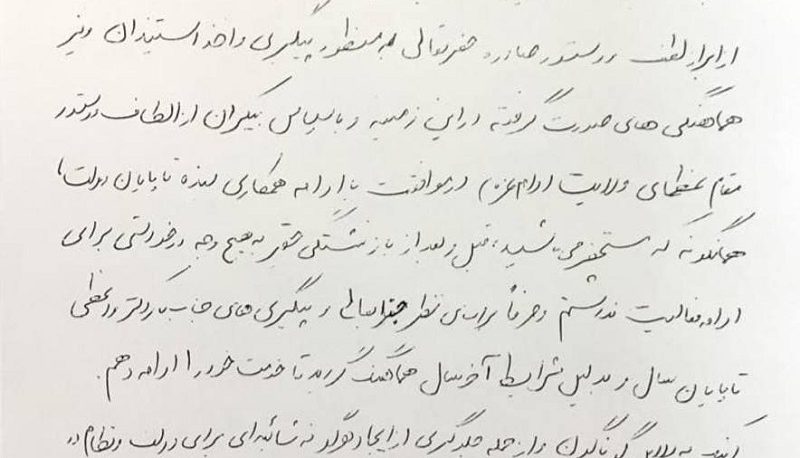 از ابراز لطف و دستور صادره حضرتعالی به منظور پیگیری و اخذ استیذان و نیز
هماهنگی های صورت گرفته در این زمینه و با سپاس بیکران از الطاف و دستور
مقام عظمای ولایت (دام عزه) در موافقت با ادامه همکاری بنده تا پایان دولت،
همانگونه که مستحضر می باشید، قبل و بعد از بازنشستگی حقیر به هیچ وجه درخواستی برای
ادامه فعالیت نداشتم و صرفاً براساس نظر جنابعالی و پیگیری های جناب دکتر واعظی
تا پایان سال و بدلیل شرایط آخر سال هماهنگ گردید تا خدمت خود را ادامه دهم.
به دلایل گوناگون و از جمله جلوگیری از ایجاد هرگونه شائبه ای برای دولت و نظام در